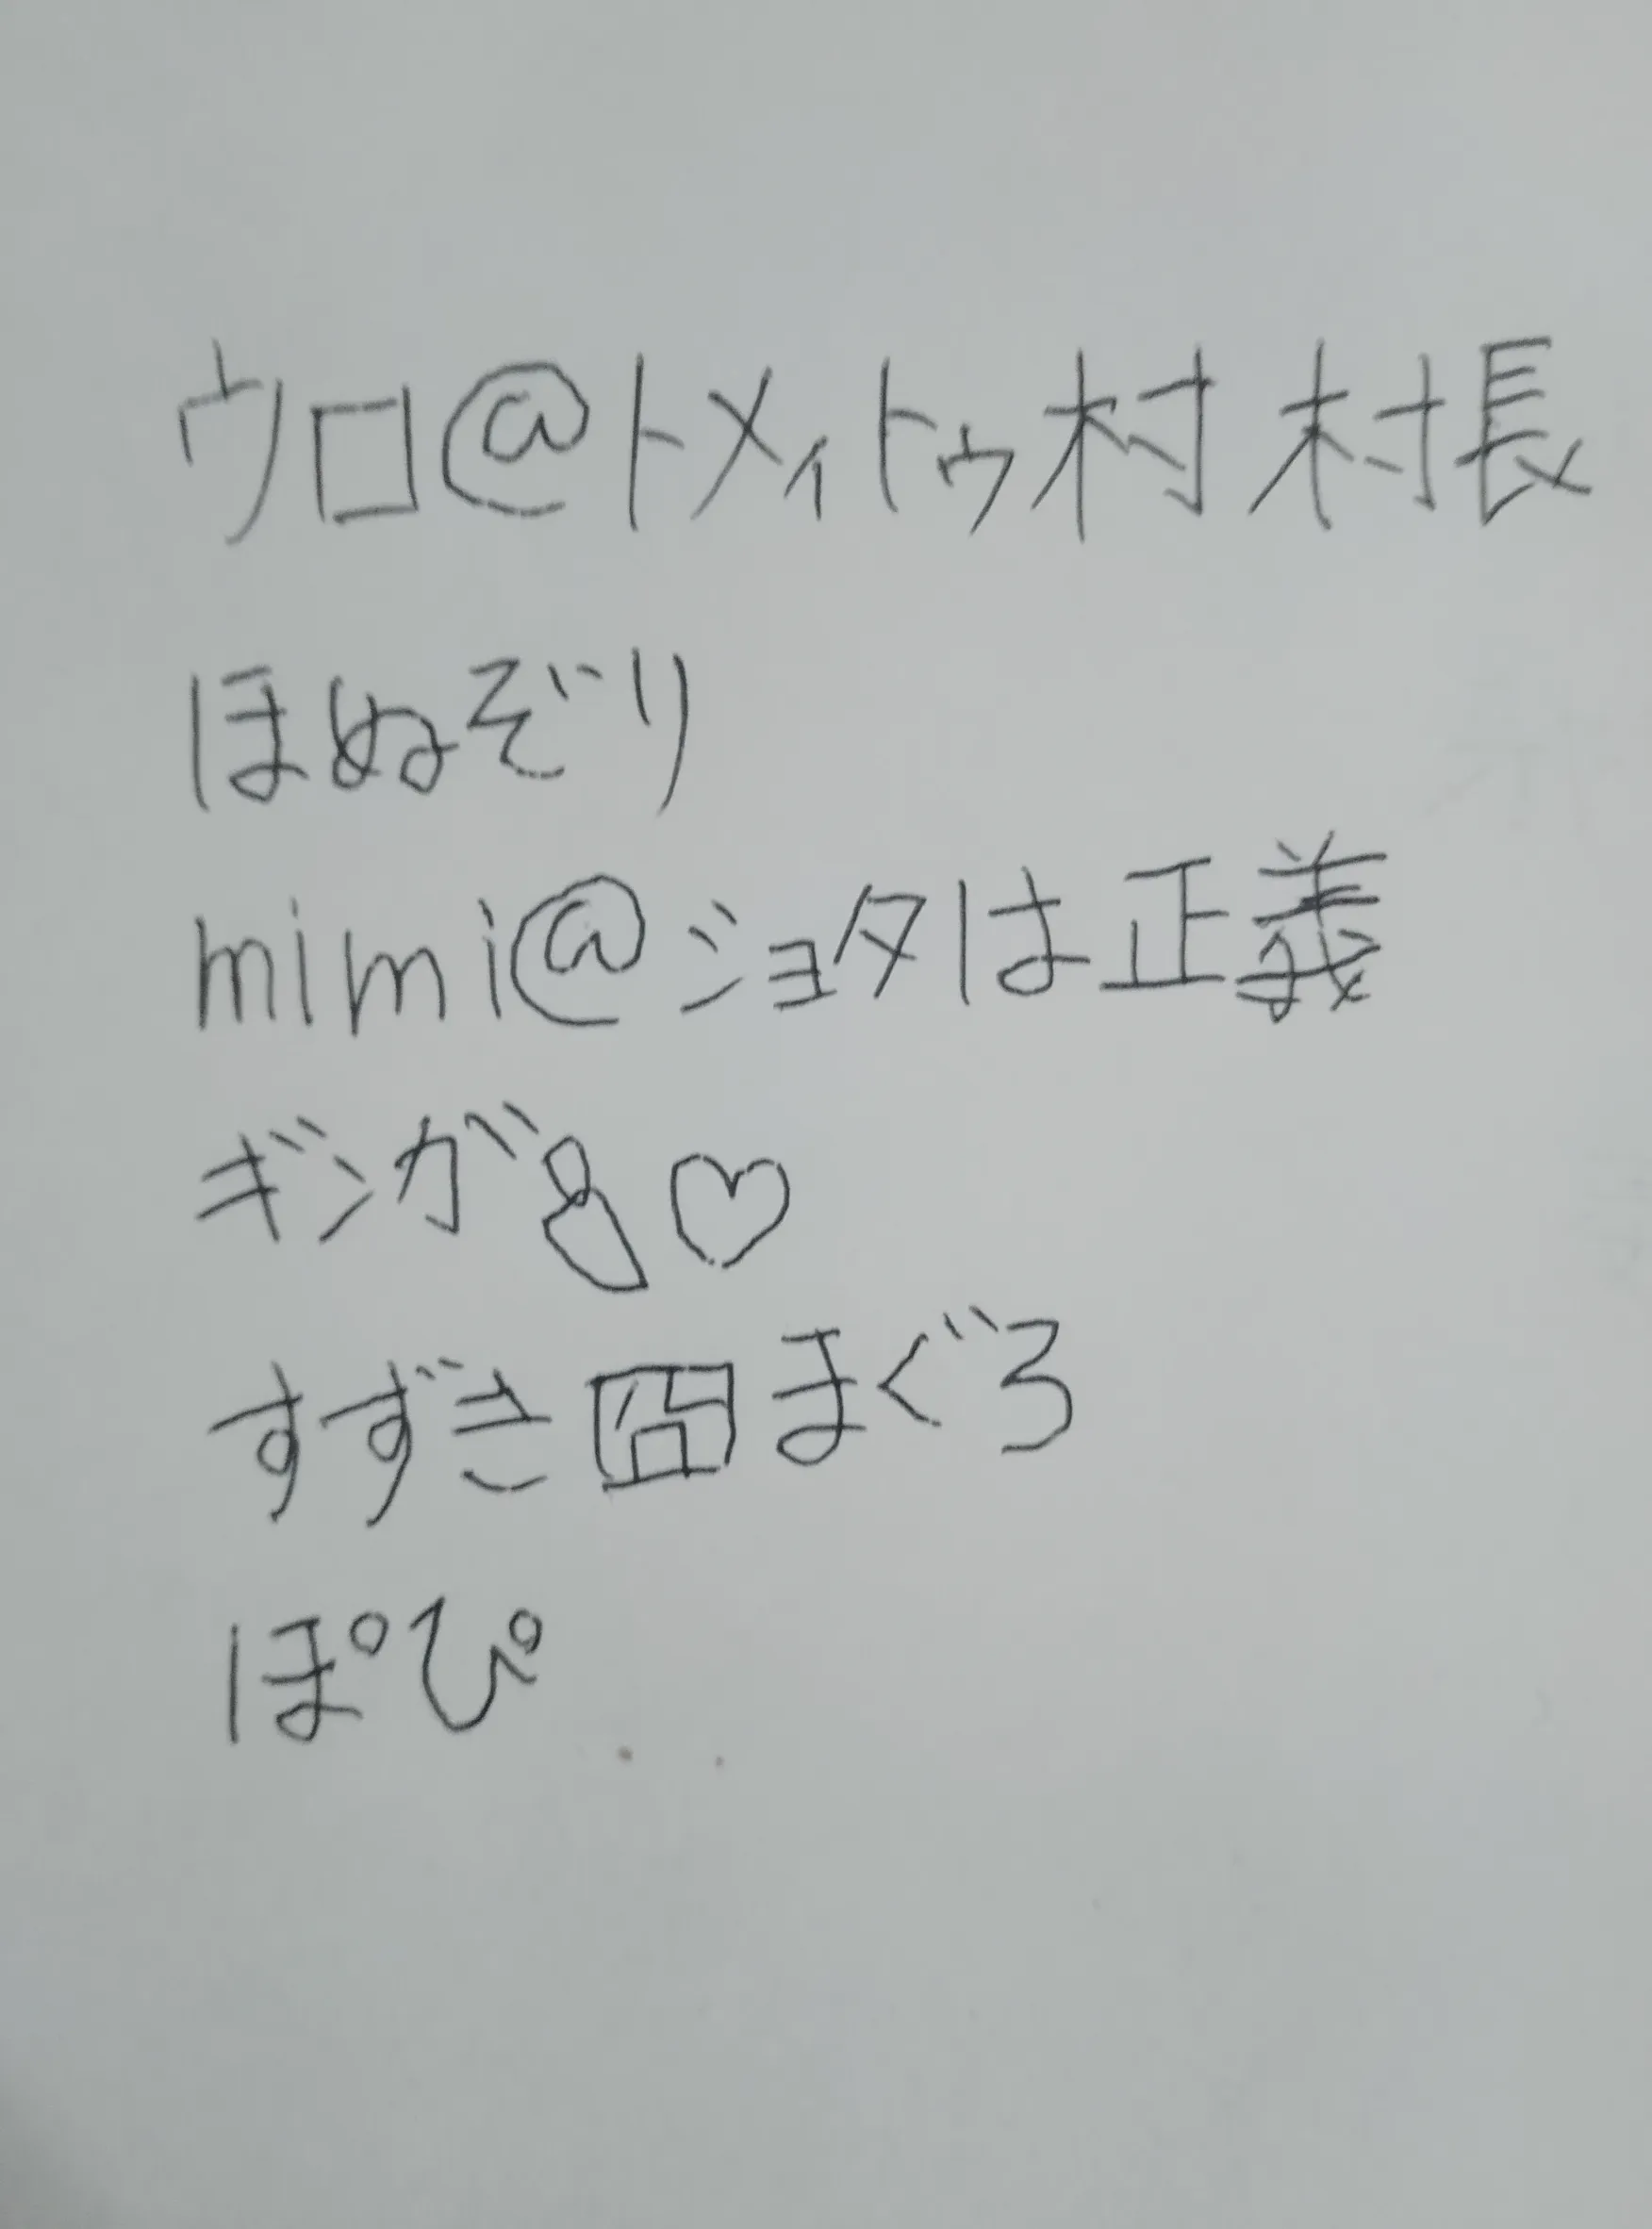 ウロ@トメイトゥ村 村長
ほぬぞり
mimi@ショタは正義
ギンガ♡
すずき囧まぐろ
ぽぴ